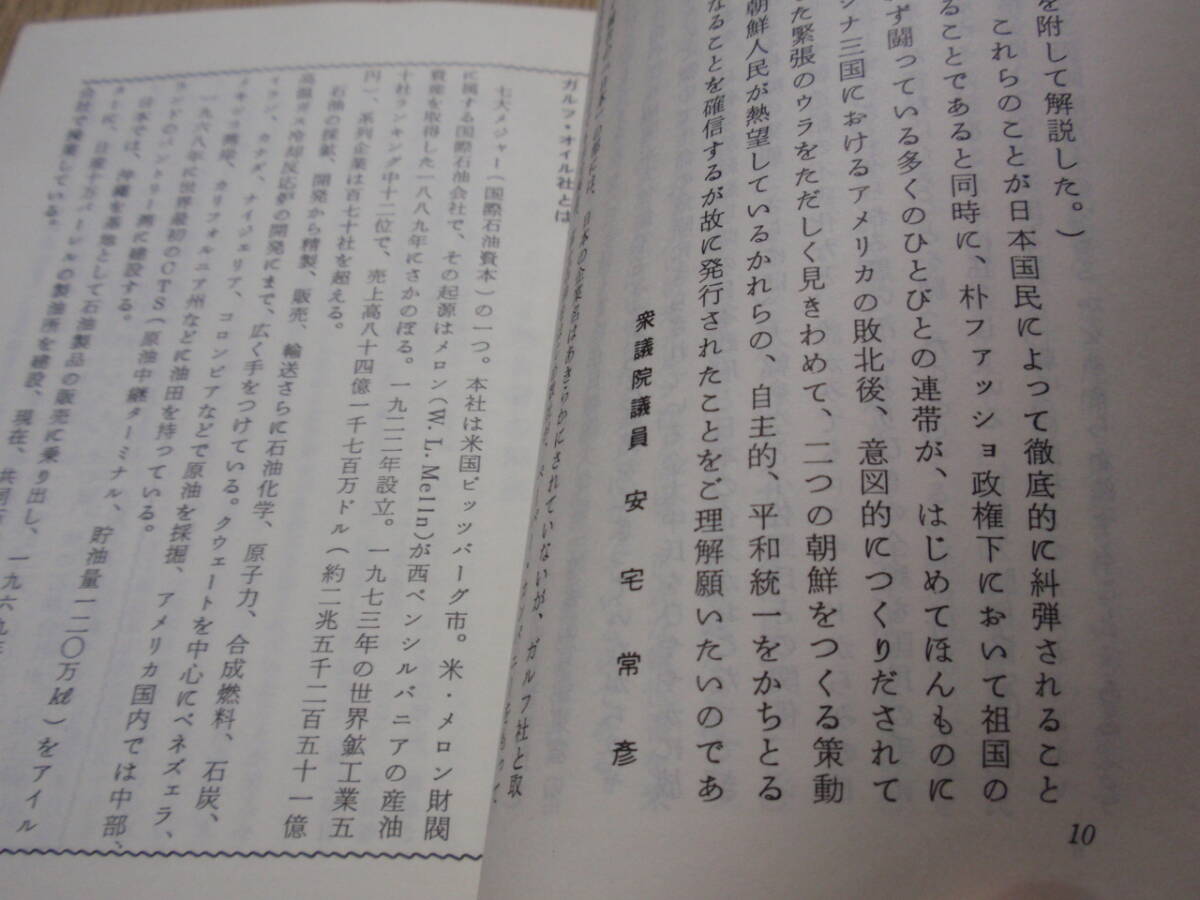 を附して解説した。）
これらのことが日本国民によって徹底的に糾弾されること
ることであると同時に、朴ファッショ政権下において祖国の
ず闘っている多くのひとびとの連帯が、はじめてほんものに
シナ三国におけるアメリカの敗北後、意図的につくりだされて
た緊張のウラをただしく見きわめて、二つの朝鮮をつくる策動
朝鮮人民が熱望しているかれらの、自主的、平和統一をかちとる
なることを確信するが故に発行されたことをご理解願いたいのであ
衆議院議員 安宅常彦
10
日本の企業名はあきらかにされていないが、ガルフ社と取
ガルフ・オイル社とは
七大メジャー（国際石油資本）の一つ。本社は米国ピッツバーグ市。米・メロン財閥
に属する国際石油会社で、その起源はメロン（W.L.Melln）が西ペンシルバニアの産油
資産を取得した一八八九年にさかのぼる。一九二二年設立。一九七三年の世界鉱工業五
十社ランキング中十二位で、売上高八十四億一千七百万ドル（約二兆五千二百五十一億
四）、系列企業は百七十社を超える。
石油の採鉱、開発から精製、販売、輸送さらに石油化学、原子力、合成燃料、石炭、
高温ガス冷却反応炉の開発にまで、広く手をつけている。クウェートを中心にベネズェラ、
イラン、カナダ、ナイジェリア、コロンビアなどで原油を採掘、アメリカ国内では中部、
メキシコ湾岸、カリフォルニア州などに油田を持っている。
一九六八年に世界最初のCTS（原油中継ターミナル、貯油量一二〇万kl）をアイル
ランドのバントリー湾に建設する。
日本では、沖縄を基地として石油製品の販売に乗り出し、一九六九年
日産十万バーレルの製油所を建設、現在、共同
会社で操業している。